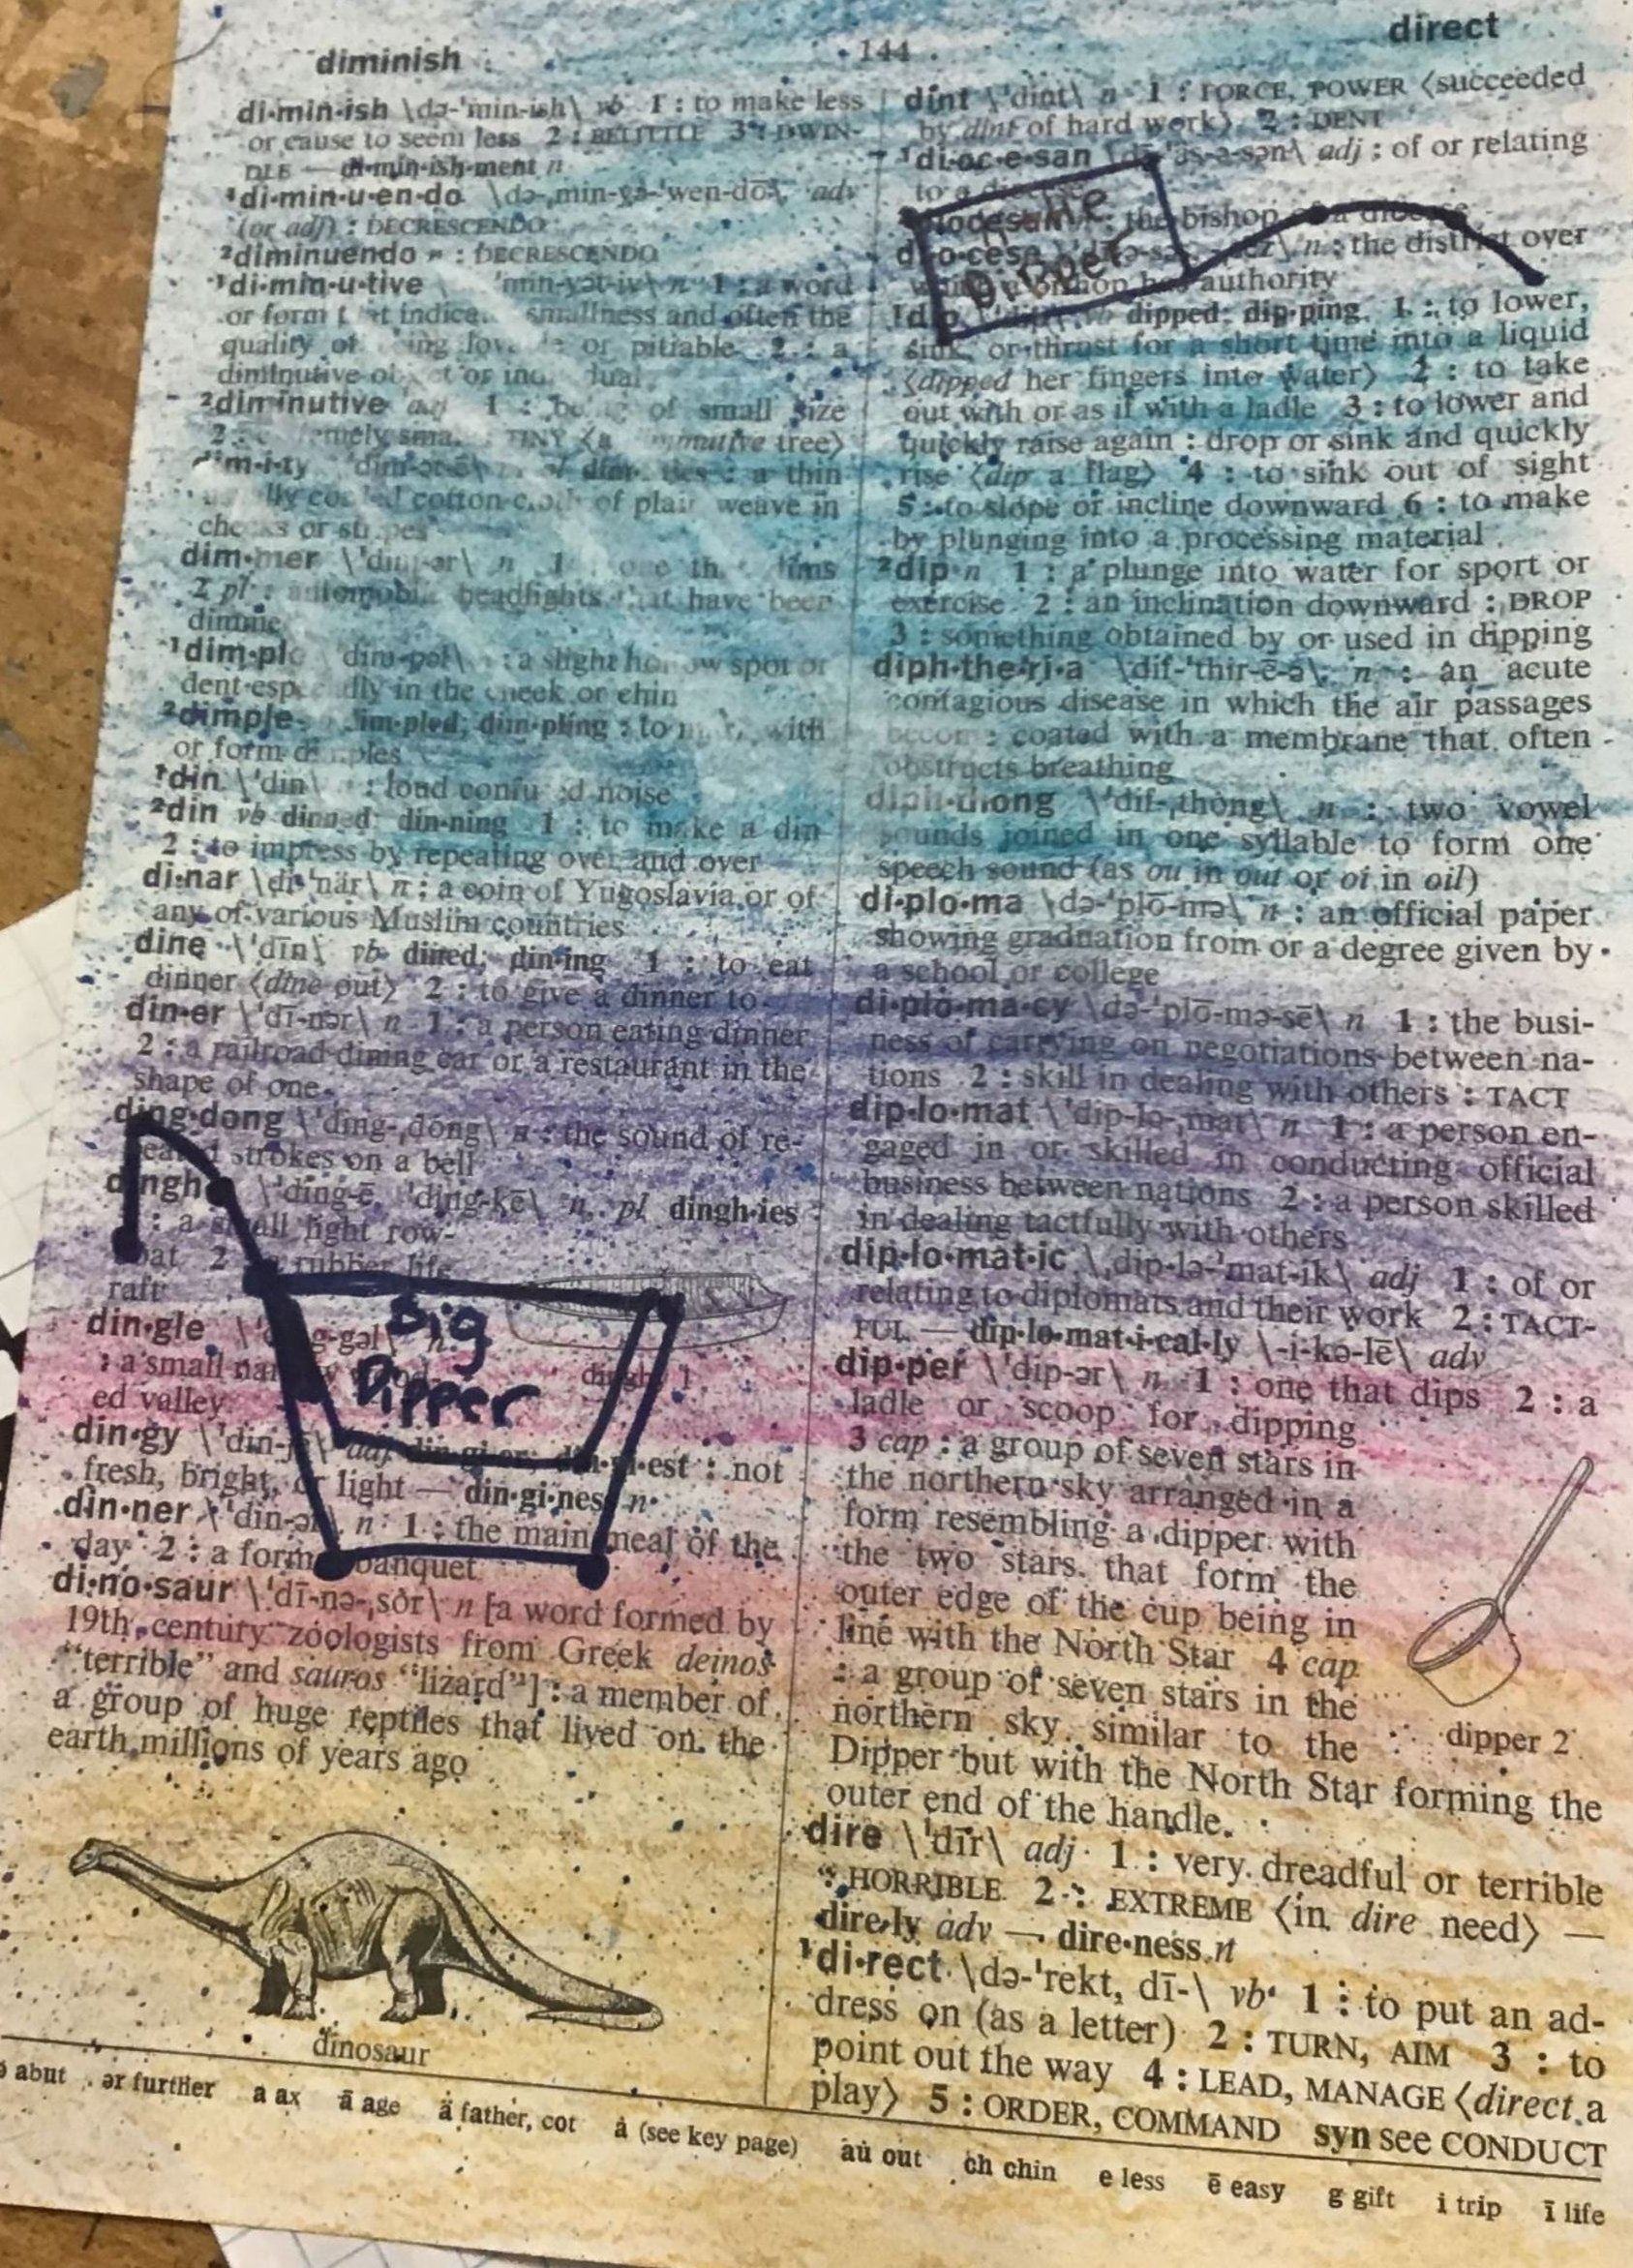 diminish
144
direct
di•min•ish \də-ˈmin-ish\ vb 1 : to make less
or cause to seem less 2 : BELITTLE 3 : DWIN-
DLE — di•min•ish•ment n
¹di•min•u•en•do \də-ˌmin-yə-ˈwen-dō\ adv
(or adj) : DECRESCENDO
²diminuendo n : DECRESCENDO
¹di•min•u•tive ˈmin-yət-iv\ n 1 : a word
or form indica smallness and often the
quality of or pitiable 2 : a
diminutive or
²diminutive adj 1 : of small size
2 : TINY tree⟩
dim•i•ty : a thin
cotton of plain weave in
or
dim•mer \ˈdim-ər\ n 1 : one
2 pl : headlights that have been
¹dim•ple ˈdim-pəl\ : a slight spot or
dent esp in the cheek or chin
²dimple dim•pling : to with
or form dimples
¹din \ˈdin\ : loud noise
²din vb dinned; din•ning 1 : to make a din
2 : to impress by repeating over and over
di•nar \di-ˈnär\ n : a coin of Yugoslavia or of
any of various Muslim countries
dine \ˈdīn\ vb dined; din•ing 1 : to eat
dinner ⟨dine out⟩ 2 : to give a dinner to
din•er \ˈdī-nər\ n 1 : a person eating dinner
2 : a railroad dining car or a restaurant in the
shape of one
ding•dong \ˈding-ˌdong\ n : the sound of re-
strokes on a bell
\ˈding-ē, ˈding-kē\ n, pl dingh•ies
: a small light row-
2 rubber life
raft
din•gle n
: a small
ed valley
Big
Dipper
dinghy 1
din•gy \ˈdin-jē\ adj din•gi•er; din•gi•est : not
fresh, bright, or light — din•gi•ness n
din•ner \ˈdin-ər\ n 1 : the main meal of the
day 2 : a formal banquet
di•no•saur \ˈdī-nə-ˌsȯr\ n [a word formed by
19th century zoologists from Greek deinos
“terrible” and sauros “lizard”] : a member of
a group of huge reptiles that lived on the
earth millions of years ago
dinosaur
dint \ˈdint\ n 1 : FORCE, POWER ⟨succeeded
by dint of hard work⟩ 2 : DENT
¹di•oc•e•san adj : of or relating
to a
: the bishop of a diocese
n : the district over
bishop has authority
Dipper
¹dip vb dipped; dip•ping 1 : to lower,
sink, or thrust for a short time into a liquid
⟨dipped her fingers into water⟩ 2 : to take
out with or as if with a ladle 3 : to lower and
quickly raise again : drop or sink and quickly
rise ⟨dip a flag⟩ 4 : to sink out of sight
5 : to slope or incline downward 6 : to make
by plunging into a processing material
²dip n 1 : a plunge into water for sport or
exercise 2 : an inclination downward : DROP
3 : something obtained by or used in dipping
diph•the•ri•a \dif-ˈthir-ē-ə\ n : an acute
contagious disease in which the air passages
become coated with a membrane that often
obstructs breathing
diph•thong \ˈdif-ˌthong\ n : two vowel
sounds joined in one syllable to form one
speech sound (as ou in out or oi in oil)
di•plo•ma \də-ˈplō-mə\ n : an official paper
showing graduation from or a degree given by
a school or college
di•plo•ma•cy \də-ˈplō-mə-sē\ n 1 : the busi-
ness of carrying on negotiations between na-
tions 2 : skill in dealing with others : TACT
dip•lo•mat \ˈdip-lə-ˌmat\ n 1 : a person en-
gaged in or skilled in conducting official
business between nations 2 : a person skilled
in dealing tactfully with others
dip•lo•mat•ic \ˌdip-lə-ˈmat-ik\ adj 1 : of or
relating to diplomats and their work 2 : TACT-
FUL — dip•lo•mat•i•cal•ly \-i-kə-lē\ adv
dip•per \ˈdip-ər\ n 1 : one that dips 2 : a
ladle or scoop for dipping
3 cap : a group of seven stars in
the northern sky arranged in a
form resembling a dipper with
the two stars that form the
outer edge of the cup being in
line with the North Star 4 cap
: a group of seven stars in the
northern sky similar to the
Dipper but with the North Star forming the
outer end of the handle
dipper 2
dire \ˈdīr\ adj 1 : very dreadful or terrible
: HORRIBLE 2 : EXTREME ⟨in dire need⟩ —
dire•ly adv — dire•ness n
¹di•rect \də-ˈrekt, dī-\ vb 1 : to put an ad-
dress on (as a letter) 2 : TURN, AIM 3 : to
point out the way 4 : LEAD, MANAGE ⟨direct a
play⟩ 5 : ORDER, COMMAND syn see CONDUCT
ə abut ər further a ax ā age ä father, cot ȧ (see key page) au̇ out ch chin e less ē easy g gift i trip ī life